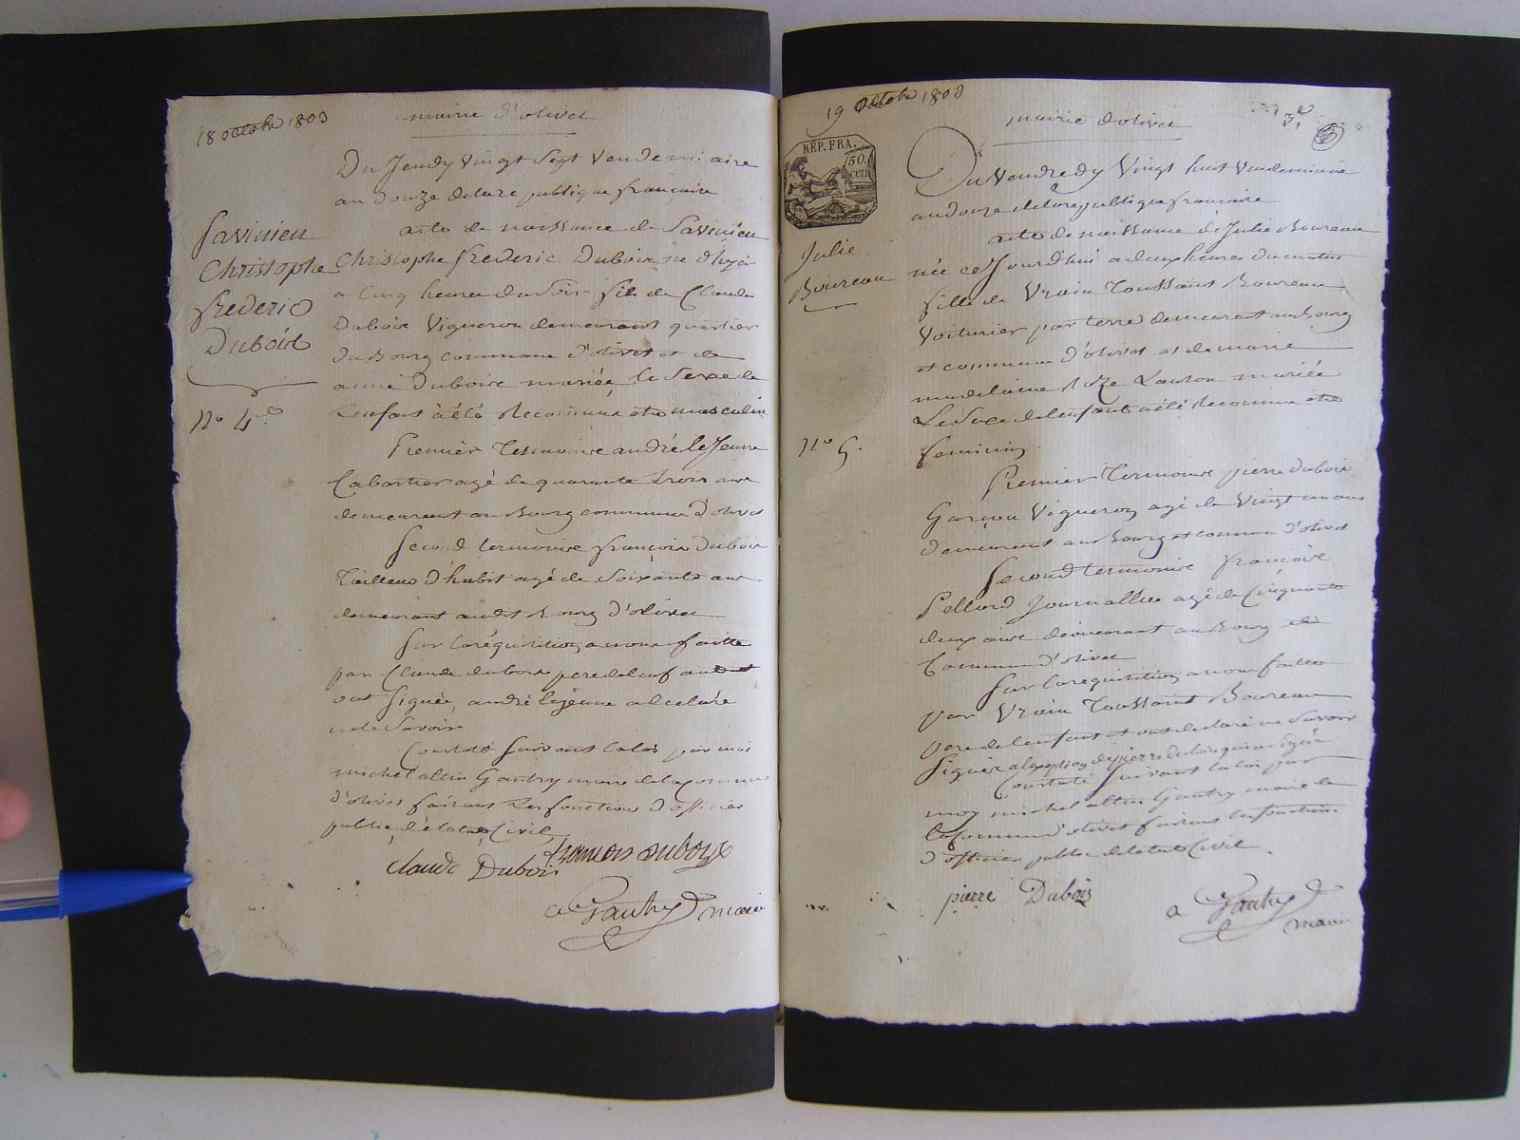 18 octobre 1803
mairie d'olivet
Du Jeudy Vingt Sept Vendemiaire
an Douze de la république françaice
acte de naissance de Savinien
Christophe frederic Duboix né d'hyer
a Cinq heures du Soir fils de Claude
Duboix Vigneron demeurant quartier
Du Bourg commune d'olivet et de
anne Duboire mariée le Sexe de
L'enfant à été Reconnue etre masculin
Premier Termoince andré le Jeune
Cabartier agé de quarante trois ans
demeurant au Bourg commune d'olivet
Second termoince françois Duboix
Tailleur d'habit agé de Soixante ans
demeurant audit Bourg d'olivet
Sur la réquisition a nous faitte
par Claude duboix pere de l'enfant et
ont Signée, andré lejeune a declaré
ne le Savoir
Constaté Suivant la loi par moi
michel altin Gautry maire de la commune
d'olivet faisant les fonctions d'officier
public de l'état Civil
françois duboix
Claude Dubois
a Gautry maire
Savinien
Christophe
frederic
Duboix
No 4
19 octobre 1803
mairie d'olivet
REP. FRA.
50.
CEN.
Du Vendredy Vingt huit Vendemiaire
an douze de la république francaice
acte de naissance de Julie Boureau
née ce Jourd'hui a deux heures du matin
fille de Vrain Toussaint Boureau
Voiturier par terre demeurant au Bourg
et commune d'olivet et de marie
madelaine Lauson mariée
Le Sexe de l'enfant a été Reconnue etre
feminin
Premier Termoince pierre duboix
Garçon Vigneron agé de Vingt un ans
demeurant au Bourg et commune d'olivet
Second termoince francoice
Pellard Journallier agé de Cinquante
deux ans demeurant au Bourg et
Commune d'olivet
Sur la requisition a nous faitte
par Vrain Toussaint Boureau
pere de l'enfant et ont declaré ne Savoir
Signer a l'exeption de pierre duboix qui a Signée
Constaté Suivant la loi par
moy michel altin Gautry maire de
la Commune d'olivet faisant les fonctions
d'officier public de l'état Civil.
pierre Dubois
a Gautry
maire
Julie
Boureau
No 5.